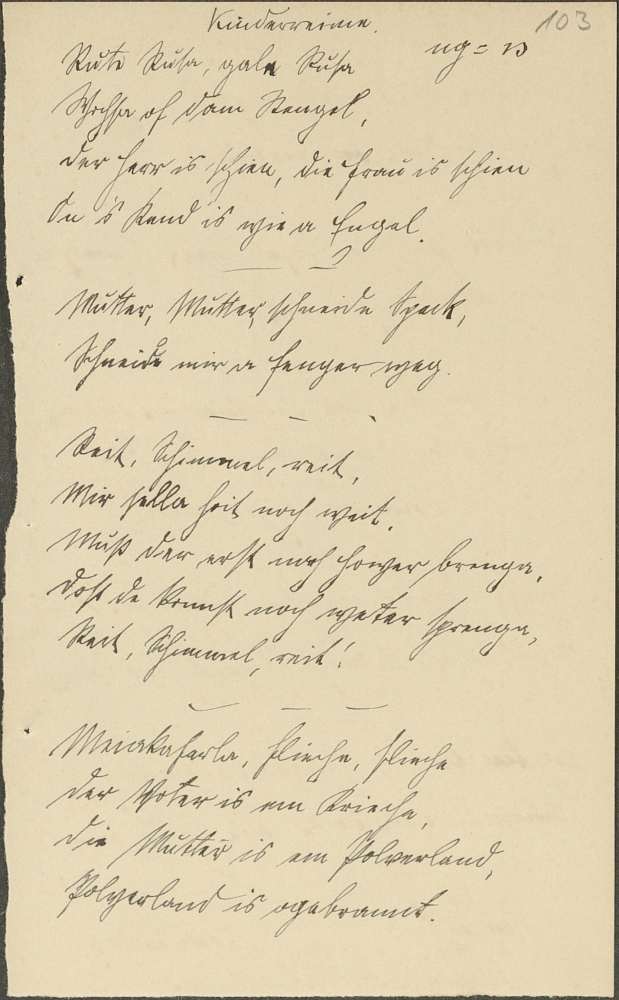 Kinderreime.
103
ng = ŋ
Rute Rusa, gale Rusa
Wachsa of dam Stengel,
der Herr is schien, die Frau is schien
On 's Kend is wie a Engel.
Mutter, Mutter, schneide Speck,
Schneide mir a Fenger weg.
Reit, Schimmel, reit,
Mir sella heit noch weit.
Muß der erst noch Hower brenga,
Doß de kennst noch weter sprenga,
Reit, Schimmel, reit!
Meiakaferla, flieche, flieche
Der Voter is em Krieche,
Die Mutter is em Polverland,
Polverland is ogebrannt.